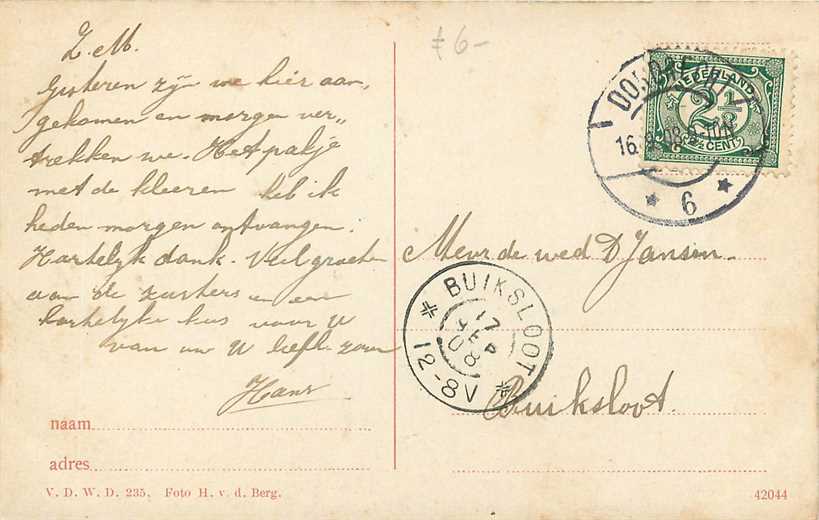 Z.M.
Gisteren zijn we hier aan„
gekomen en morgen ver„
trekken we. Het pakje
met de kleeren heb ik
heden morgen ontvangen.
Hartelyk dank. Veel groeten
aan de zusters en een
hartelyke kus voor U
van uw U liefh. zoon
Hans
naam
adres
V. D. W. D. 235. Foto H. v. d. Berg.
6-
NEDERLAND
2½
CENT
16
6
Mevr de wed D Jansen
BUIKSLOOT
17
8
12-8V
Buiksloot.
42044